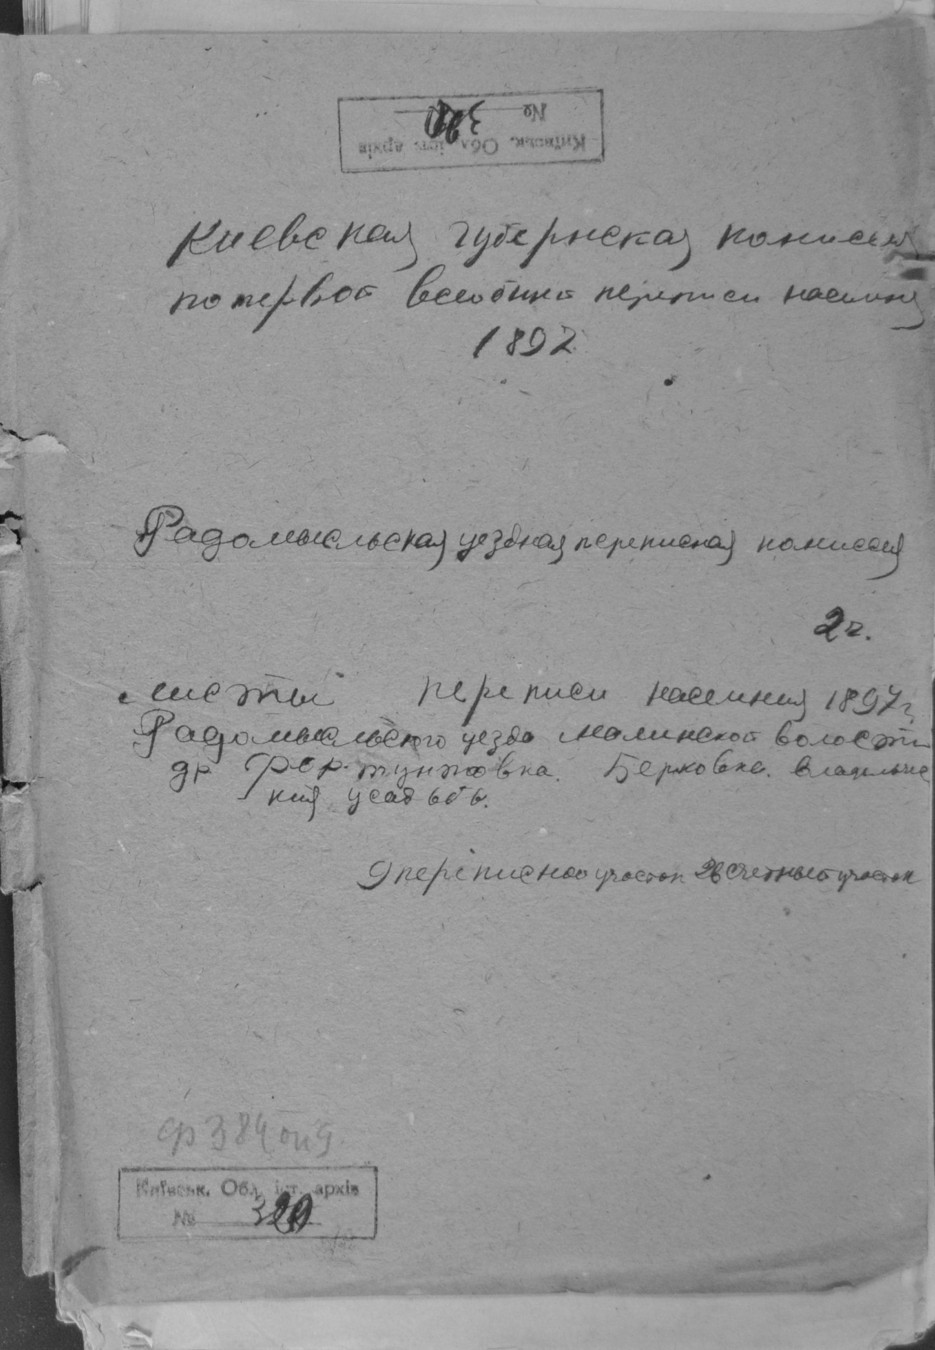 № 320
Київськ. Обл. іст. архів
Киевская губернская комиссия
по первой всеобщей переписи населения
1897
Радомысльская уездная переписная комиссия
2 г.
Листы переписи населения 1897 г.
Радомысльского уезда Малинской волости
др Фортунтовка. Берковка. Владельче
ния усадьбы.
9 переписной участок 26 счетный участок
ф 384 оп 9
Київськ. Обл. іст. архів
№ 320